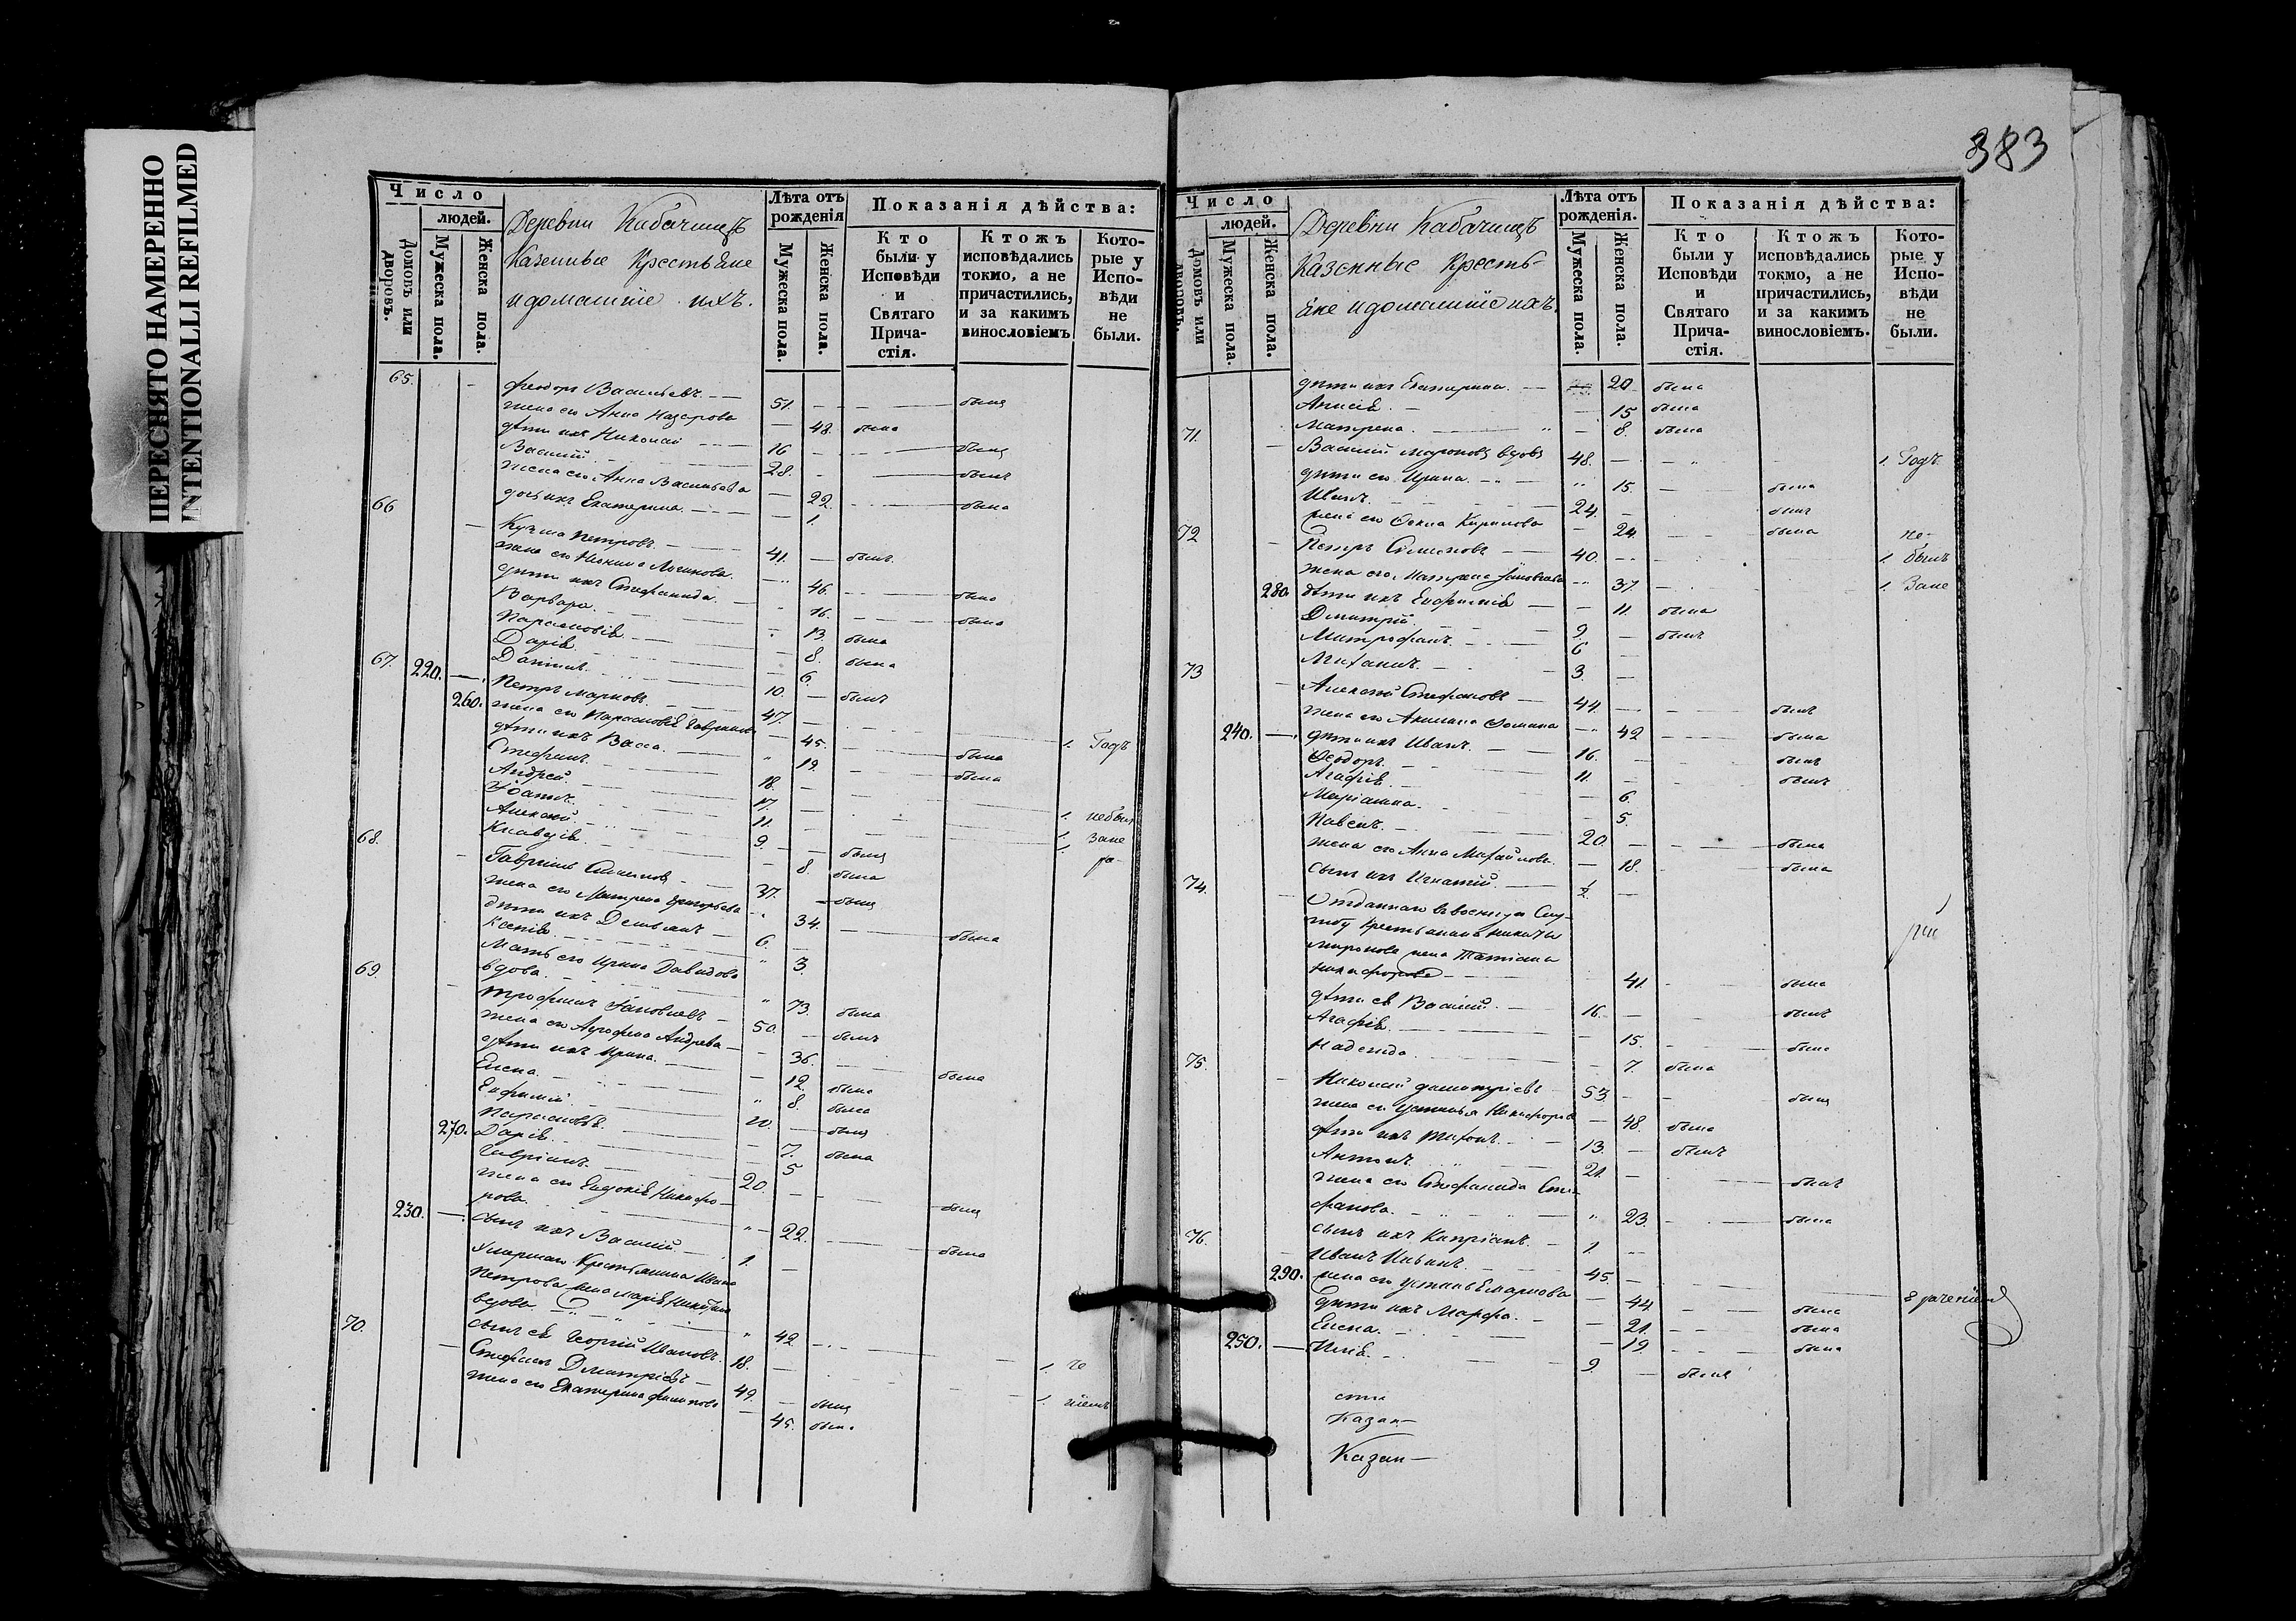 383
ПЕРЕСНЯТО НАМЕРЕННО
INTENTIONALLI REFILMED
Число
людей.
Домовъ или дворовъ.
Мужеска пола.
Женска пола.
Деревни Кабачищъ
Казенные Крестьяне
и домашніе ихъ.
Лѣта отъ рожденія
Мужеска пола.
Женска пола.
Показанія дѣйства:
Кто были у Исповѣди и Святаго Причастія.
Ктожъ исповѣдались токмо, а не причастились, и за какимъ винословіемъ
Которые у Исповѣди не были.
65.
Феодоръ Васильевъ 51. былъ
жена его Анна Назарова 48. была
дѣти ихъ Николай 16 былъ
Василий 28. былъ
жена его Анна Васильева 22. была
дочь ихъ Екатерина 1.
66
Кузьма Петровъ 41. былъ
жена его Логинова. 46. была
дѣти ихъ Стефанида 16. была
Варвара 13. была
Парасковія 8. была
Дарія 6.
67. 220.
Даніилъ 10. былъ
260.
Петръ Марковъ. 47. 1. Годъ
жена его Парасковія Гаврилова 45. была
дѣти ихъ Васса 19. была
Стефанъ 18. 1. небыл
Андрей 17. 1. Зане
Іоаннъ 11. былъ
Алексей 9.
Клавдія 8. была
68.
Гавріилъ 37. былъ
жена его Матрена Григорьева 34. была
дѣти ихъ Демьянъ 6.
Ксенія 3.
Мать его Ирина Давидова
вдова 73. была
69.
Трофимъ Яковлевъ 50. былъ
жена его Андрева 36. была
дѣти ихъ Ирина 12. была
Елена 8. была
Евфимій 10. былъ
Парасковья 7. была
270.
Дарія 5
Гавріилъ 20. былъ
жена его Евдокія Никифо-
рова 22. была
230.
сынъ ихъ Василій 1.
Умершаго Крестьянина Ивана
Петрова жена Марія Никитина
вдова 42. 1. че
сынъ ея Георгій Ивановъ. 18. 1. ніемъ
70.
Стефанъ Дмитріевъ 49. былъ
жена его Екатерина Филипова 45. была
Число
людей.
Домовъ или дворовъ.
Мужеска пола.
Женска пола.
Деревни Кабачищъ
Казенные Кресть-
яне и домашніе ихъ.
Лѣта отъ рожденія.
Мужеска пола.
Женска пола.
Показанія дѣйства:
Кто были у Исповѣди и Святаго Причастія.
Ктожъ исповѣдались токмо, а не причастились, и за какимъ винословіемъ.
Которые у Исповѣди не были.
дѣти ихъ Екатерина. 20 была
Анисія 15 была
Матрена 8. была
71.
Василій вдовъ 48. 1. Годъ
дѣти его Ирина 15. была
Иванъ 24. былъ
жена его Кирилова 24. была
72
Петръ 40. 1. не- былъ
жена его Матрена Яковлева 37. 1. Зане
280.
дѣти ихъ Евфимія 11. была
Дмитрій 9. былъ
Митрофанъ 6
Михаилъ 3.
73
Алексей Стефановъ 44. былъ
жена его Акилина Фомина 42 была
240.
дѣти ихъ Иванъ 16. былъ
Феодоръ 11. былъ
Агафія 6.
Маріанна 5.
Павелъ 20. былъ
жена его Анна Михайлова 18. была
сынъ ихъ Игнатій ½
74.
Отданнаго въ военную Слу-
жбу Крестьянина Никиты
Миронова жена Татіана
Никифорова 41. была
дѣти ея Василій 16. былъ
Агафія 15. была
Надежда 7. была
75.
Николай Димитріевъ 53. былъ
жена его Устинья Никифорова 48. была
дѣти ихъ Тихонъ 13. былъ
Антонъ 21. былъ
жена его Стефанида Сте-
фанова 23. была
сынъ ихъ Кипріанъ 1.
76.
Иванъ Ильинъ 45.
290.
жена его Устинья Маркова 44. была
дѣти ихъ Марфа 21. была
Елена 19. была
250.
Илія 9. былъ
Казан—
Казан—